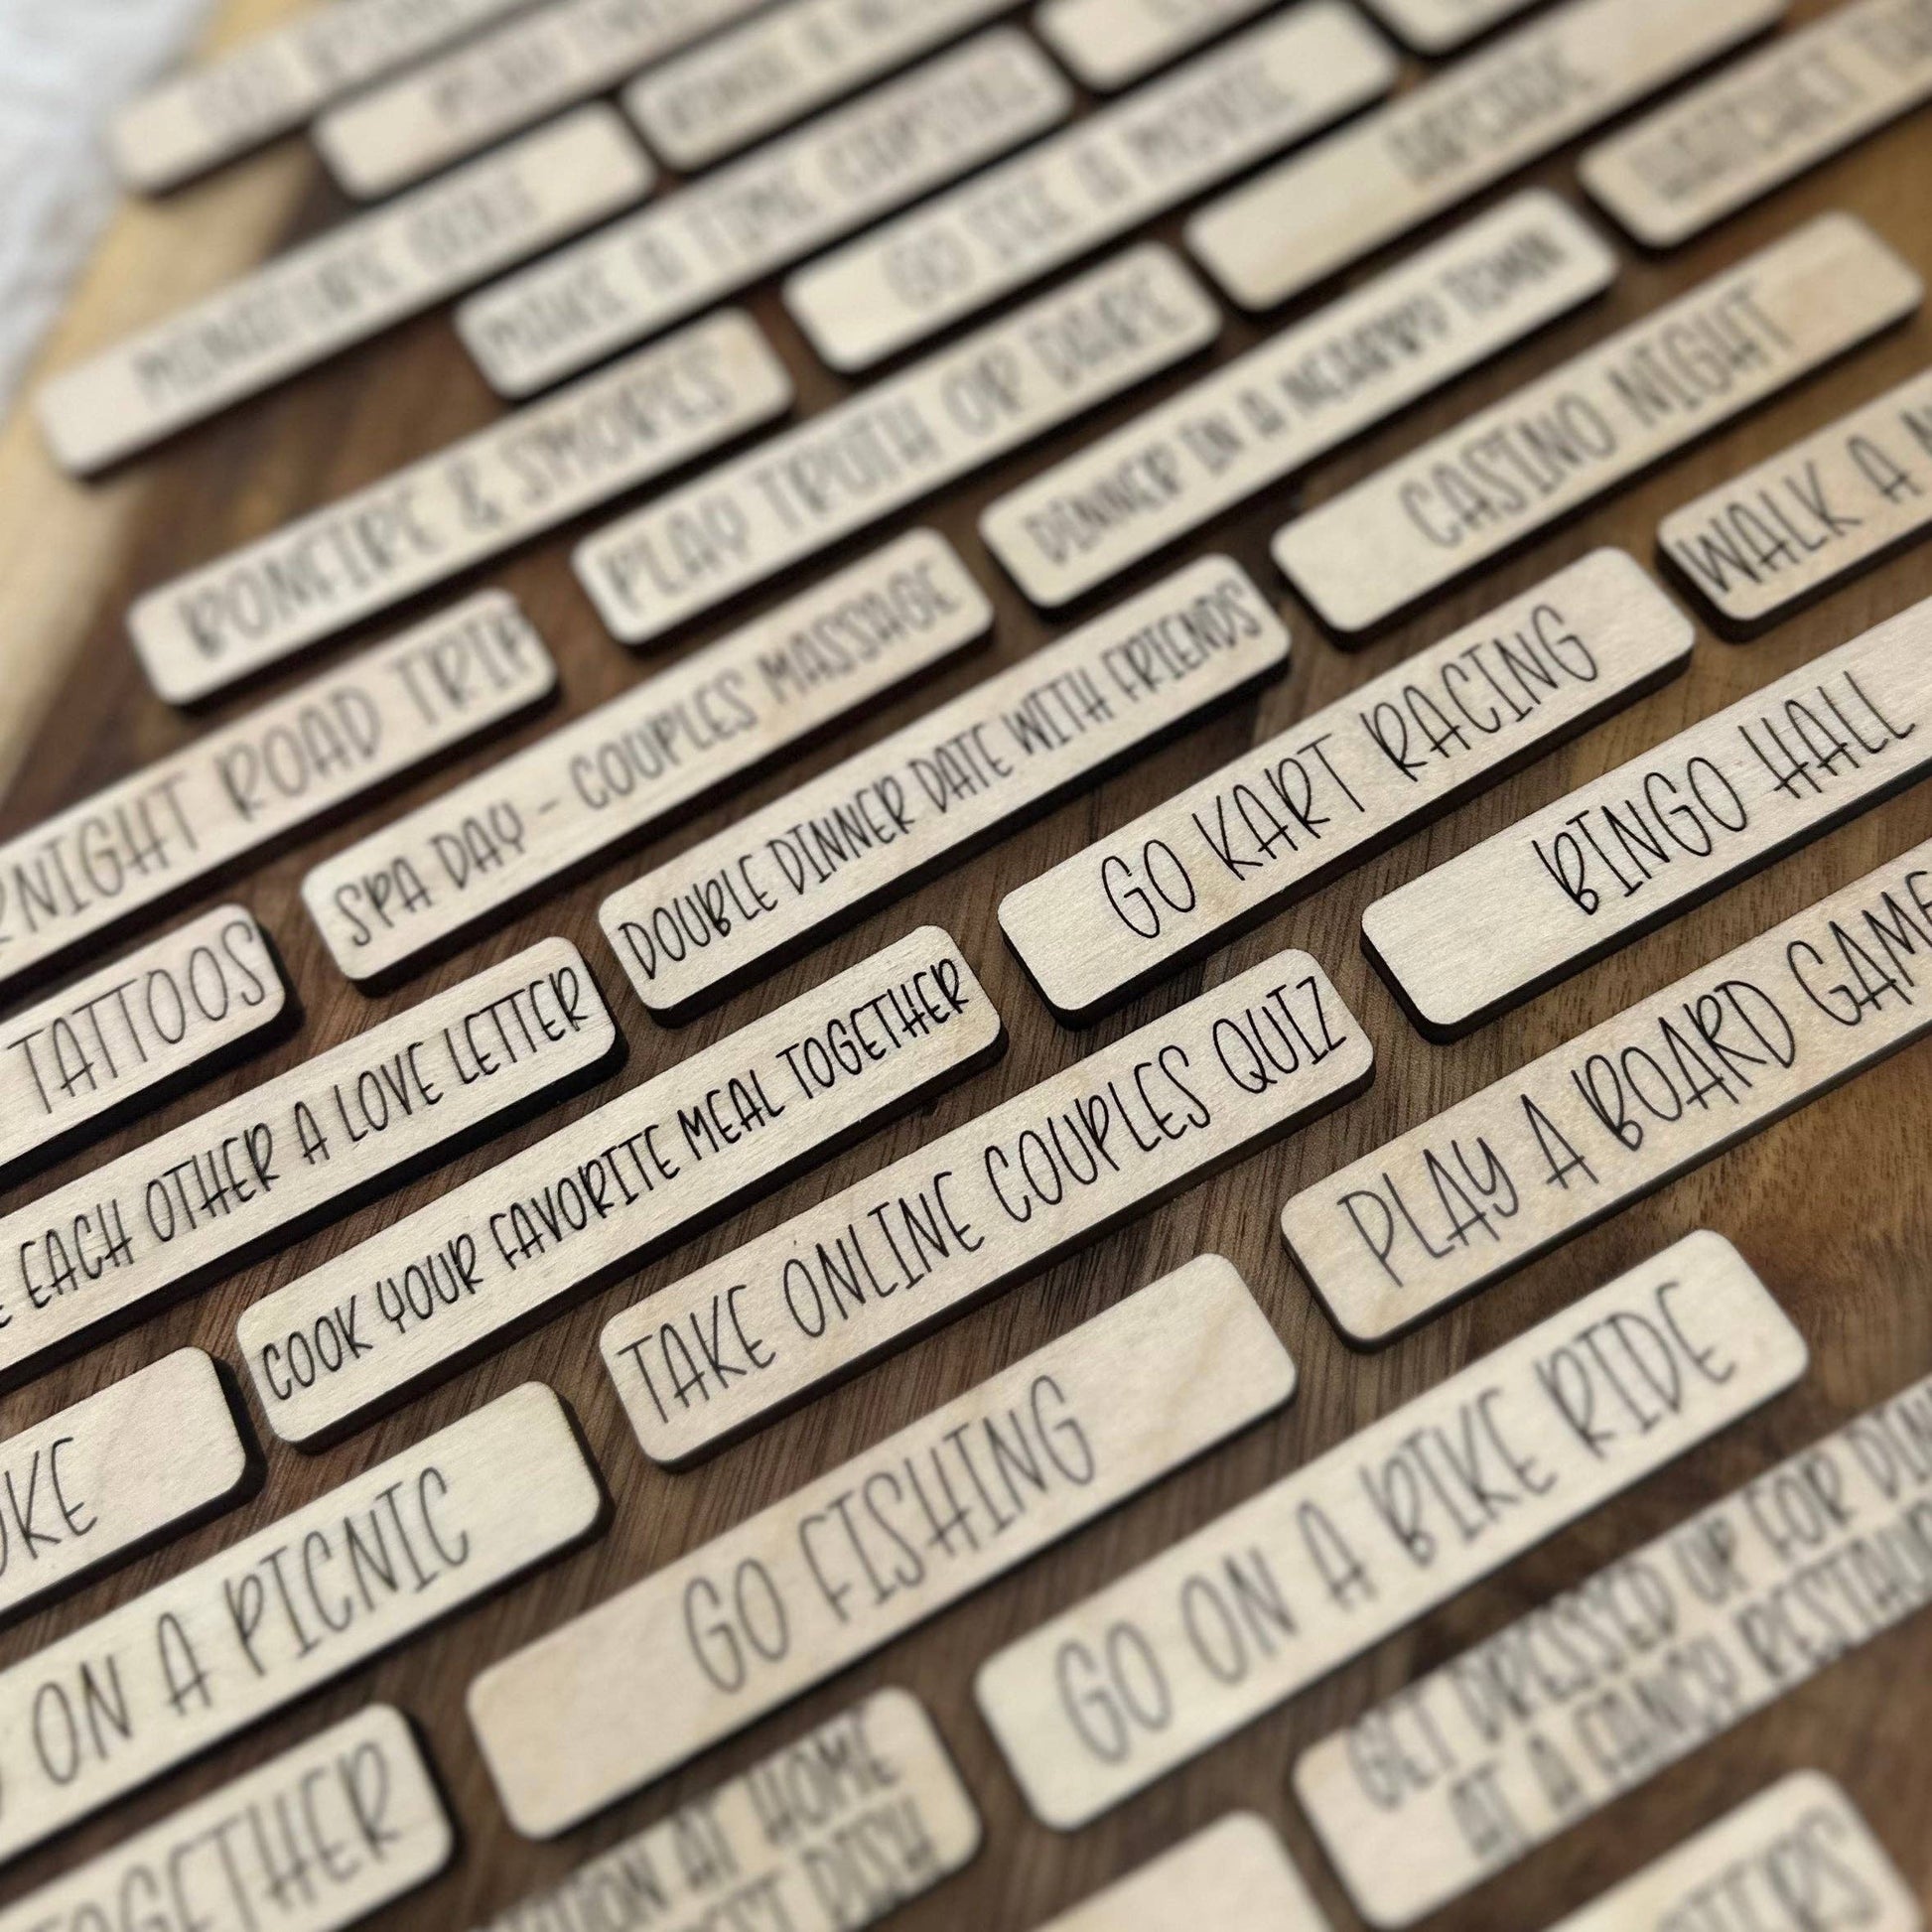 MINIATURE GOLF
MAKE A TIME CAPSULE
GO SEE A MOVIE
ARCADE
BONFIRE & SMORES
PLAY TRUTH OR DARE
DINNER IN A NEARBY TOWN
CASINO NIGHT
WALK A
RNIGHT ROAD TRIP
SPA DAY - COUPLES MASSAGE
DOUBLE DINNER DATE WITH FRIENDS
GO KART RACING
BINGO HALL
TATTOOS
EACH OTHER A LOVE LETTER
COOK YOUR FAVORITE MEAL TOGETHER
TAKE ONLINE COUPLES QUIZ
PLAY A BOARD GAME
OKE
ON A PICNIC
GO FISHING
GO ON A BIKE RIDE
GET DRESSED UP FOR DIN
AT A FANCY RESTAUR
TOGETHER
AT HOME
DISH